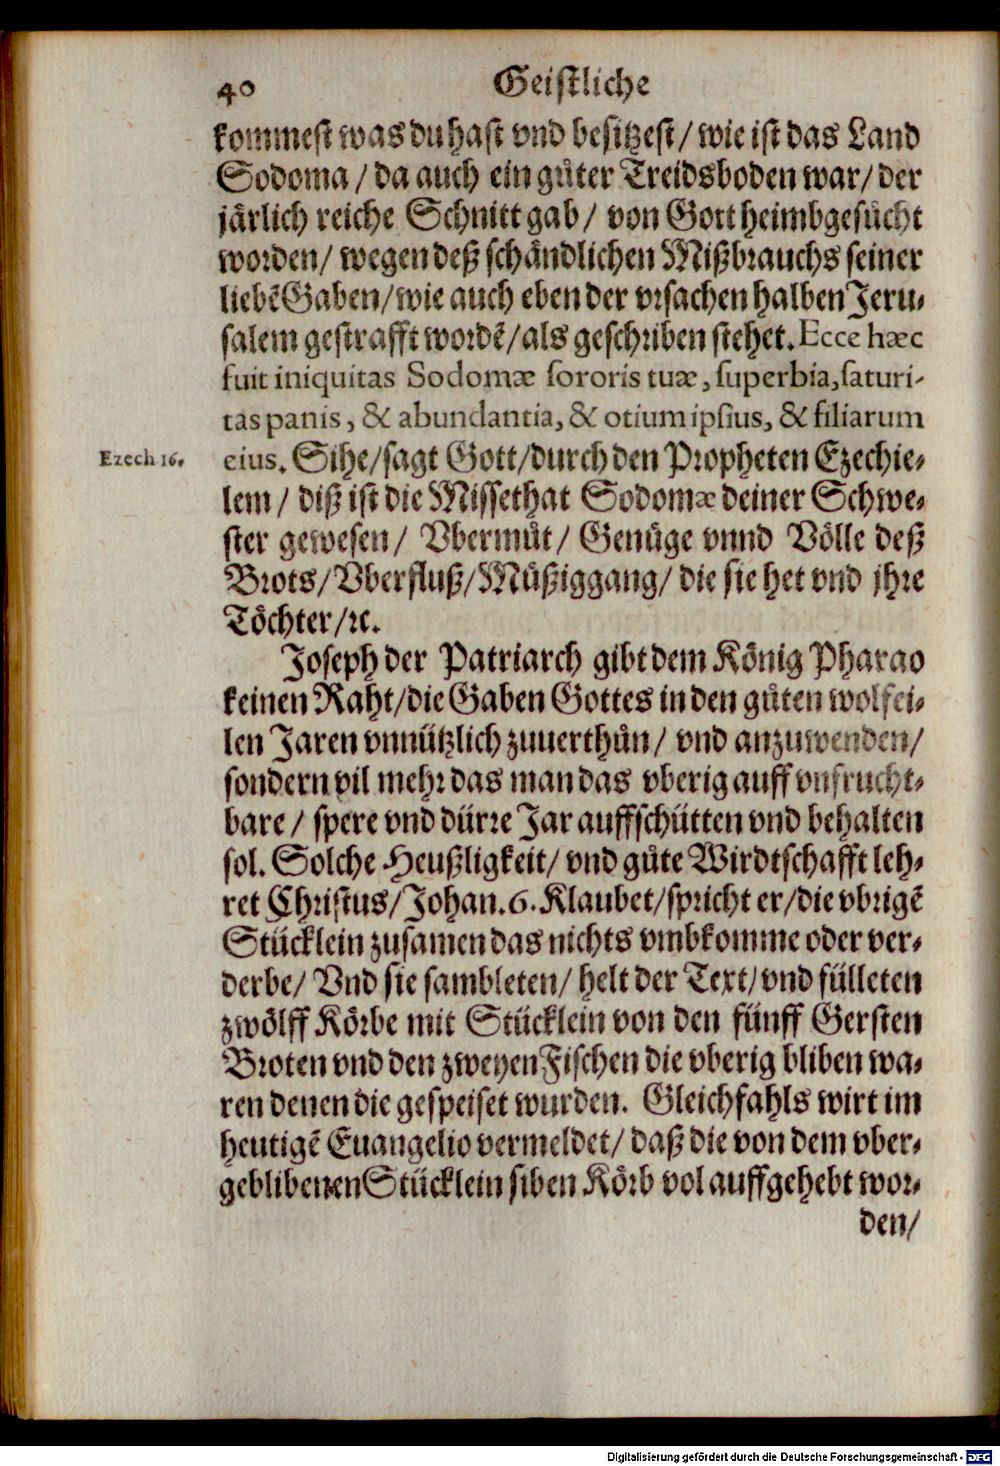 40 Geistliche
kommest was du hast vnd besitzest/ wie ist das Land
Sodoma/ da auch ein gůter Treidsboden war/ der
järlich reiche Schnitt gab/ von Gott heimbgesůcht
worden/ wegen deß schändlichen Mißbrauchs seiner
liebẽ Gaben/ wie auch eben der vrsachen halben Jeru-
salem gestrafft wordẽ/ als geschriben stehet. Ecce hæc
fuit iniquitas Sodomæ sororis tuæ, superbia, saturi-
tas panis, & abundantia, & otium ipsius, & filiarum
Ezech 16. eius. Sihe/ sagt Gott/ durch den Propheten Ezechie-
lem/ diß ist die Missethat Sodomæ deiner Schwe-
ster gewesen/ Vbermůt/ Genüge vnnd Völle deß
Brots/ Vberfluß/ Müßiggang/ die sie het vnd jhre
Töchter/ ꝛc.
Joseph der Patriarch gibt dem König Pharao
keinen Raht/ die Gaben Gottes in den gůten wolfei-
len Jaren vnnützlich zuuerthůn/ vnd anzuwenden/
sondern vil mehr das man das vberig auff vnfrucht-
bare/ spere vnd dürre Jar auffschütten vnd behalten
sol. Solche Heußligkeit/ vnd gůte Wirdtschafft leh-
ret Christus/ Johan. 6. Klaubet/ spricht er/ die vbrigẽ
Stücklein zusamen das nichts vmbkomme oder ver-
derbe/ Vnd sie sambleten/ helt der Text/ vnd fülleten
zwölff Körbe mit Stücklein von den fünff Gersten
Broten vnd den zweyen Fischen die vberig bliben wa-
ren denen die gespeiset wurden. Gleichfahls wirt im
heutigẽ Euangelio vermeldet/ daß die von dem vber-
geblibenen Stücklein siben Körb vol auffgehebt wor-
den/
Digitalisierung gefördert durch die Deutsche Forschungsgemeinschaft - DFG